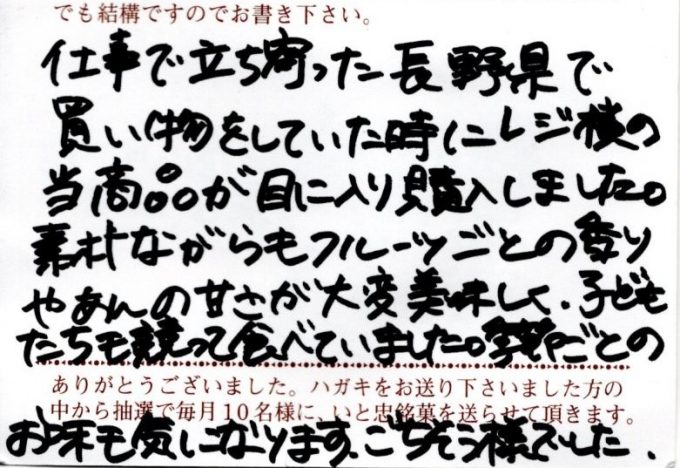 でも結構ですのでお書き下さい。
仕事で立ち寄った長野県で
買い物をしていた時にレジ横の
当商品が目に入り購入しました。
素朴ながらもフルーツごとの香り
やあんの甘さが大変美味しく、子ども
たちも競って食べていました。季節ごとの
ありがとうございました。ハガキをお送り下さいました方の
中から抽選で毎月10名様に、いと忠銘菓を送らせて頂きます。
お味も気になります、ごちそう様でした、